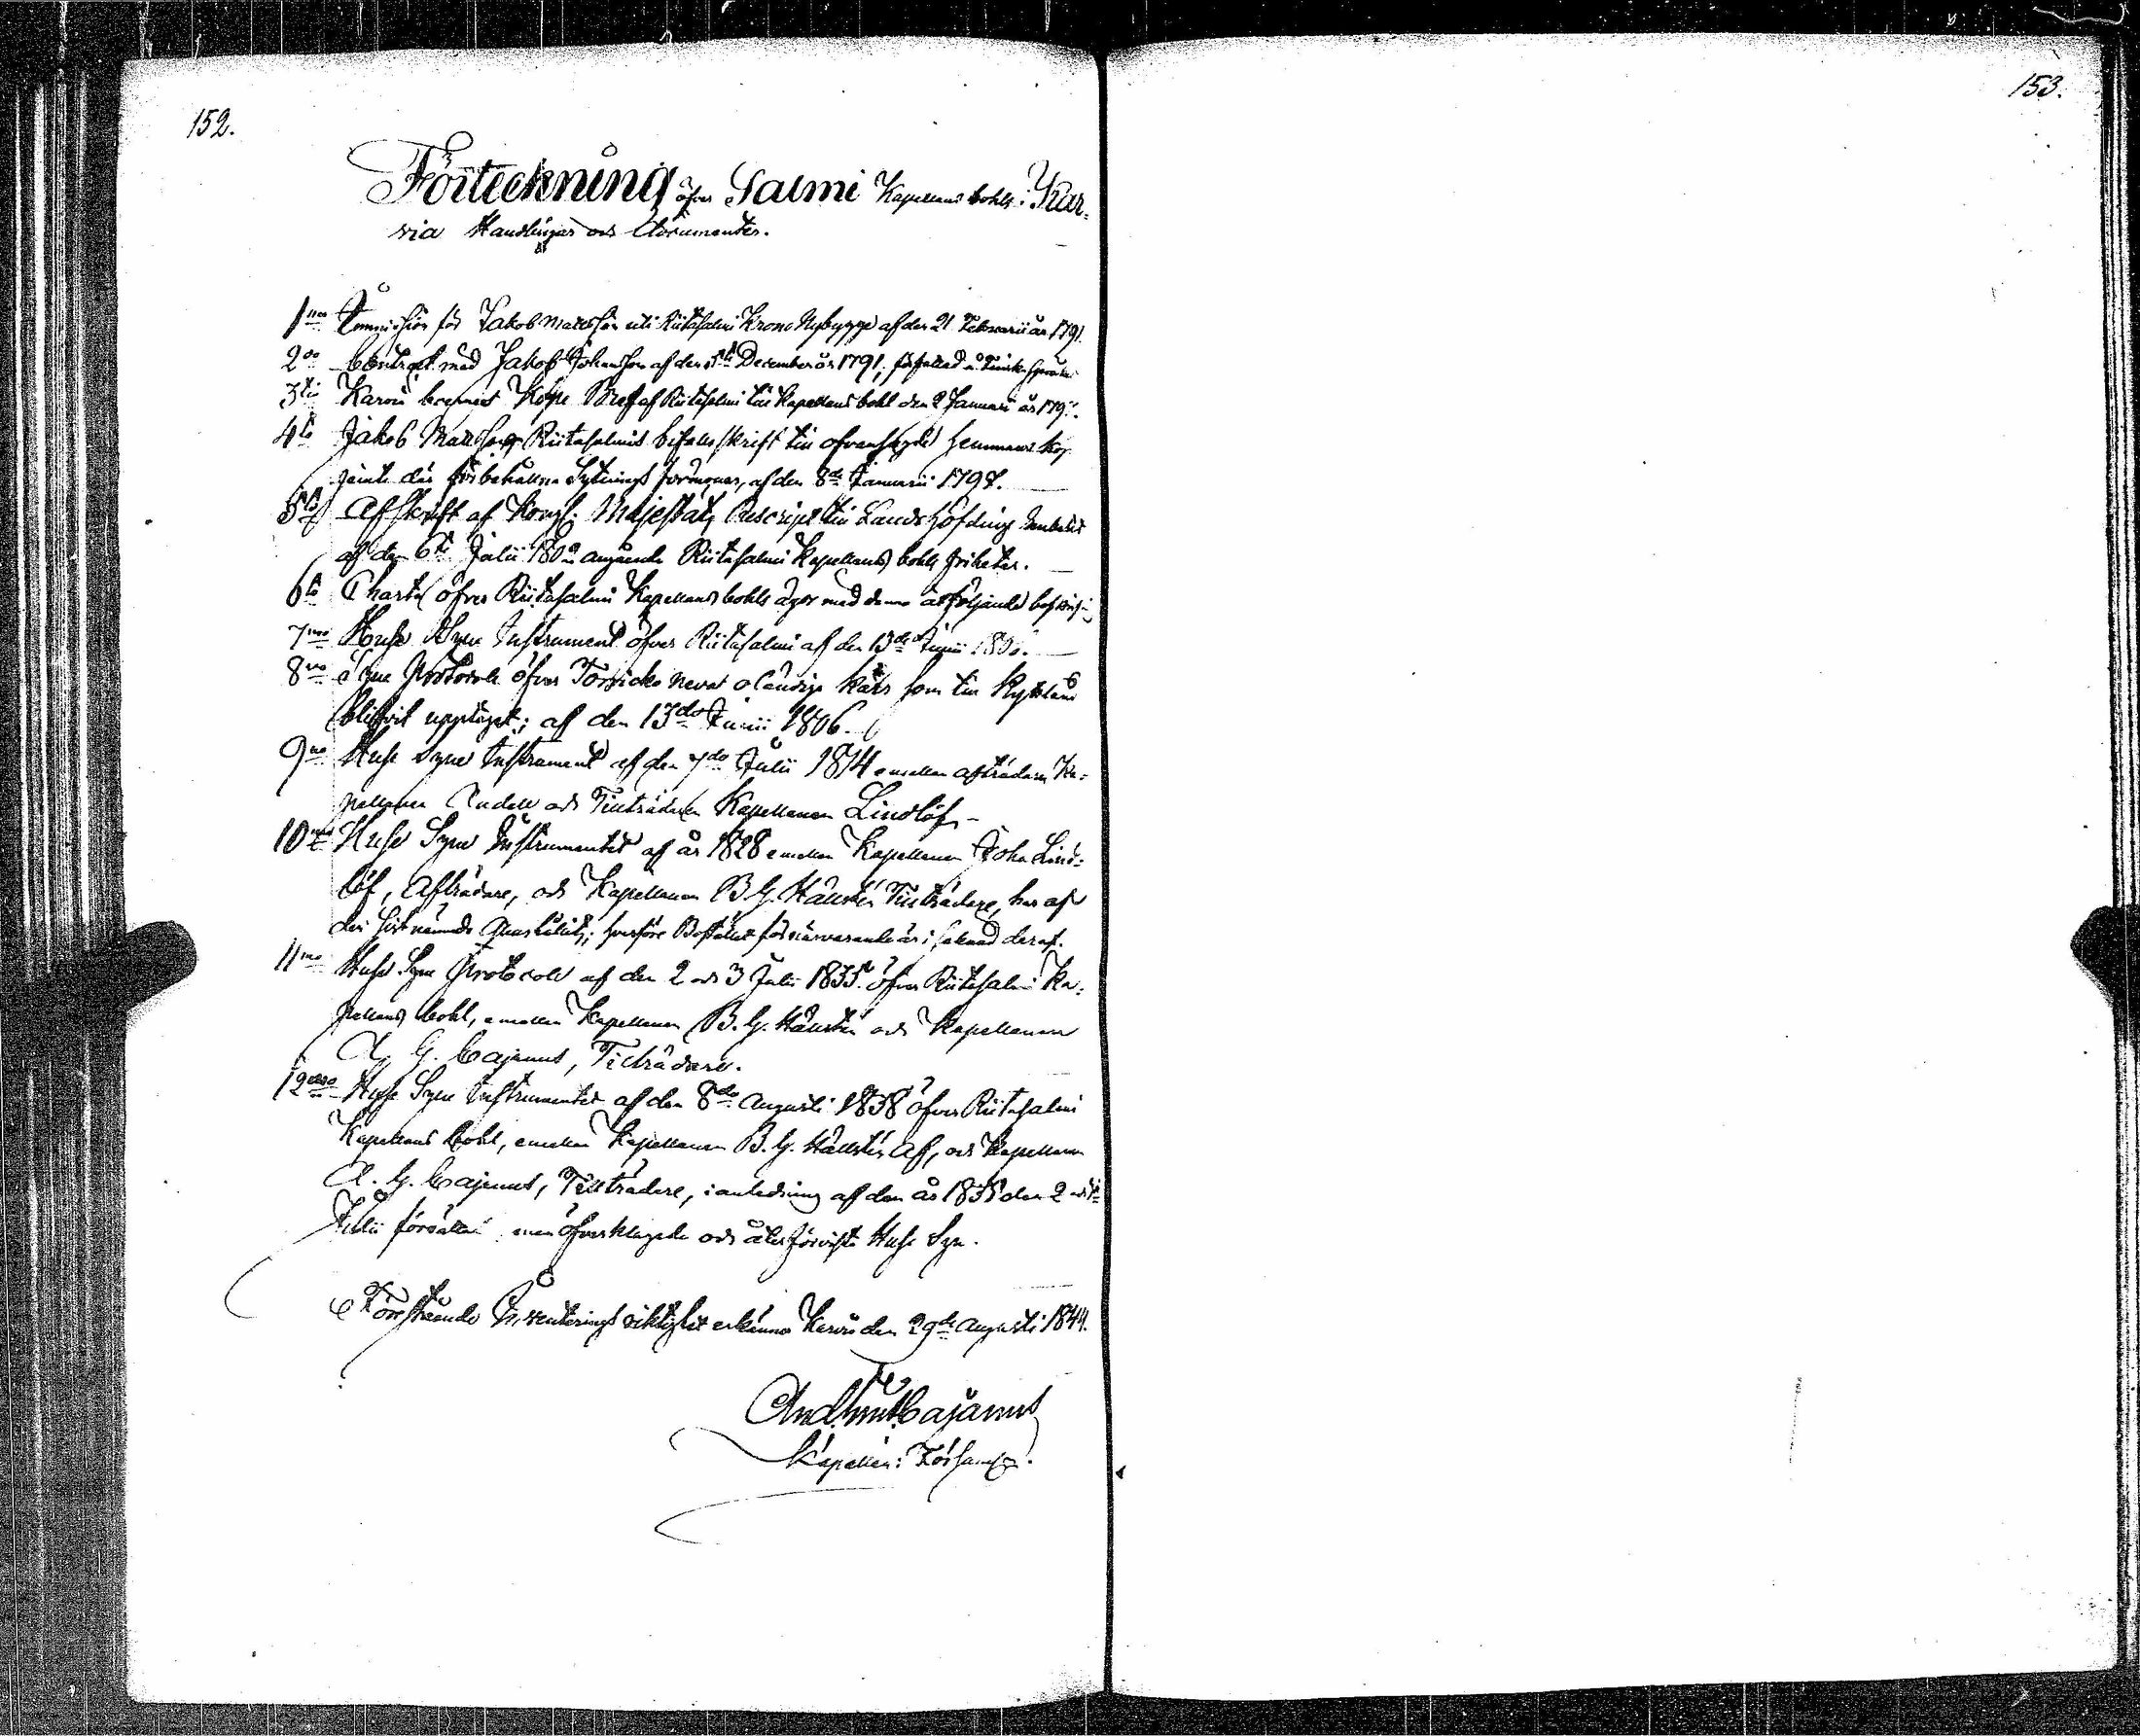 152.
153.
Förteckning öfver Salmi Kapellans bohls i Kar-
via Handlingar och Documenter.
1mo Immission för Jakob Mattsson uti Riitasalmi Krono Nybygge af den 21 Februarii år 1791.
2do Contract med Jakob Johansson af den December år 1791; författad å Finska Språket
3tio Karvia Köpe Bref af Riitasalmi till Kapellans bohl den 2 Januari år
4to Jakob Mattsson Riitasalmis bifalls skrift till ofvansagde Hemmans köp
jemte der förbehållna Sytnings förmoner, af den 8de Januarii 1797.
5to Afskrift af Kongl. Majestäts Rescript till Landshöfdinge Embetet
af den 6te Julii 1802 angående Riitasalmi Kapellans bohls friheter.
6to Charta öfver Riitasalmi Kapellans bohls ägor med denna åtföljande beskrifn:
7mo Huse Syne Instrument öfver Riitasalmi af den 13de Junii
8vo Syne Protocoll öfver neva oländige kärr som till Kyttland
blifvit upptaget; af den 13de Junii 1806.
9no Huse Syne Instrument af den 7de Julii 1814 emellan afträdaren Ka-
pellanen och Tillträdaren Kapellanen Lindlöf.
10mo Huse Syne Instrumentet af år 1828 emellan Kapellanen Joh. Lind-
löf, Afträdare, och Kapellanen B. G. Hällstén Tillträdare, har af
den sistnämnde hvarföre Bostället för närvarande är i saknad deraf.
11mo Huse Syne Protocoll af den 2 och 3 Julii 1835 öfver Riitasalmi Ka-
pellans bohl, emellan Kapellanen B. G. Hällstén och Kapellanen
A. G. Cajanus, Tillträdare.
12mo Huse Syne Instrumentet af den 8de Augusti 1838 öfver Riitasalmi
Kapellans bohl, emellan Kapellanen B. G. Hällstén Af, och Kapellanen
A. G. Cajanus, Tillträdare, i anledning af den år 1835 den 2 och
Julii men öfverklagade och återförviste Huse Syn.
Förestående Inventerings riktighet erkänner Karvia den 29de Augusti 1844.
And. Gust. Cajanus
Kapellan i Församl: